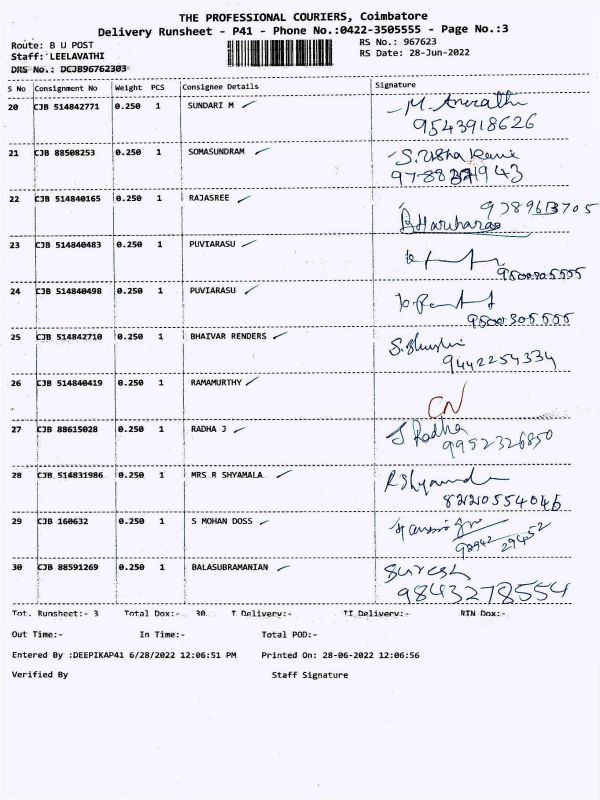 THE PROFESSIONAL COURIERS, Coimbatore
Delivery Runsheet - P41 - Phone No.:0422-3505555 - Page No.:3
Route: B U POST RS No.: 967623
Staff: LEELAVATHI RS Date: 28-Jun-2022
DRS No.: DCJB96762303
S No Consignment No Weight PCS Consignee Details Signature
20 CJB 514842771 0.250 1 SUNDARI M
9543918626
21 CJB 88508253 0.250 1 SOMASUNDRAM
22 CJB 514840165 0.250 1 RAJASREE
23 CJB 514840483 0.250 1 PUVIARASU
9500305555
24 CJB 514840498 0.250 1 PUVIARASU
9500305555
25 CJB 514842710 0.250 1 BHAIVAR RENDERS
9442254334
26 CJB 514840419 0.250 1 RAMAMURTHY
CN
27 CJB 88615028 0.250 1 RADHA J J Radha
9952326850
28 CJB 514831986 0.250 1 MRS R SHYAMALA
8220554046
29 CJB 160632 0.250 1 S MOHAN DOSS
98942 29452
30 CJB 88591269 0.250 1 BALASUBRAMANIAN Suresh
9843278554
Tot. Runsheet:- 3 Total Dox:- 30 I Delivery:- II Delivery:- RTN Dox:-
Out Time:- In Time:- Total POD:-
Entered By :DEEPIKAP41 6/28/2022 12:06:51 PM Printed On: 28-06-2022 12:06:56
Verified By Staff Signature